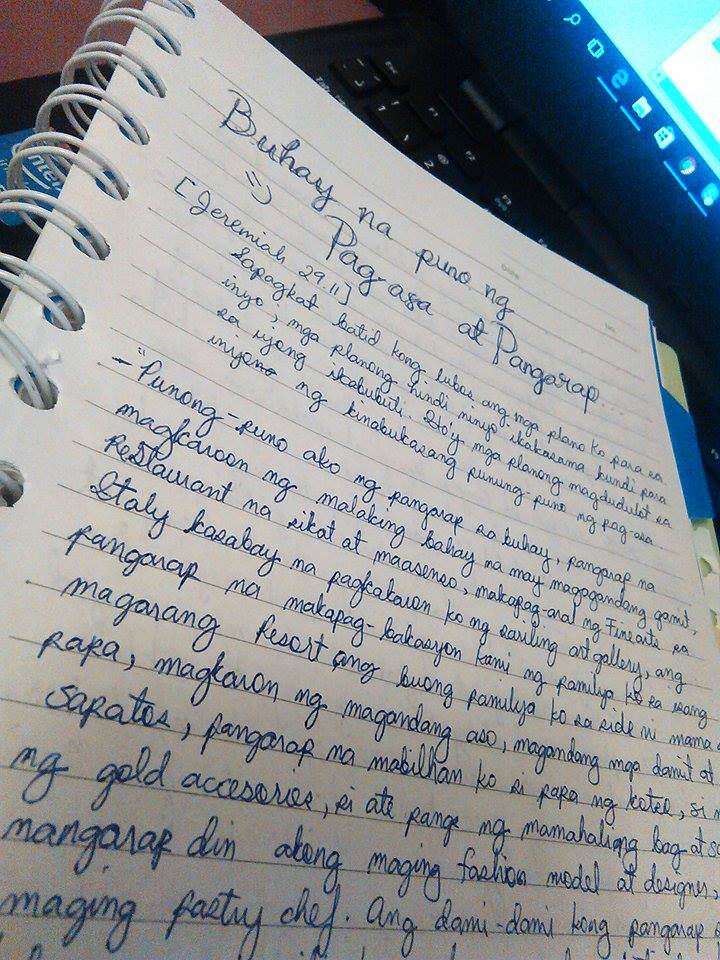 Buhay na puno ng
=) Pag-asa at Pangarap...
[Jeremiah 29:11]
Sapagkat batid kong lubos ang mga plano ko para sa
inyo; mga planong hindi ninyo ikakasama kundi para
sa iyong ikabubuti. Ito'y mga planong magdudulot sa
inyong ng kinabukasang punung-puno ng pag-asa.
- "Punong-puno ako ng pangarap sa buhay, pangarap na
magkaroon ng malaking bahay na may magagandang gamit,
Restaurant na sikat at maasenso, makapag-aral ng Fine arts sa
Italy kasabay na pagkakaron ko ng sariling art gallery, ang
pangarap na makapag-bakasyon kami ng pamilya ko sa isang
magarang Resort ang buong pamilya ko sa side ni mama
papa, magkaron ng magandang aso, magandang mga damit at
sapatos, pangarap na mabilhan ko si papa ng kotse, si
ng gold accesories, si ate pange ng mamahaling bag at
mangarap din akong maging fashion model at designer,
maging pastry chef. Ang dami-dami kong pangarap